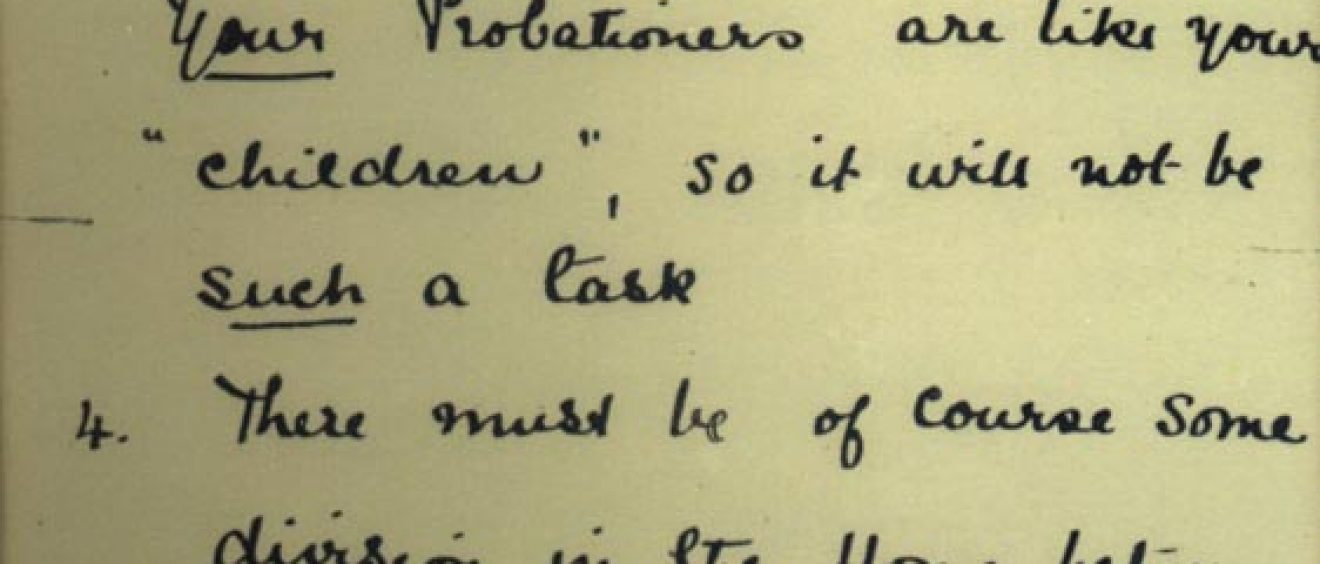 Your Probationers are like your
"children", so it will not be
such a task
4. There must be of course some
division in the Home